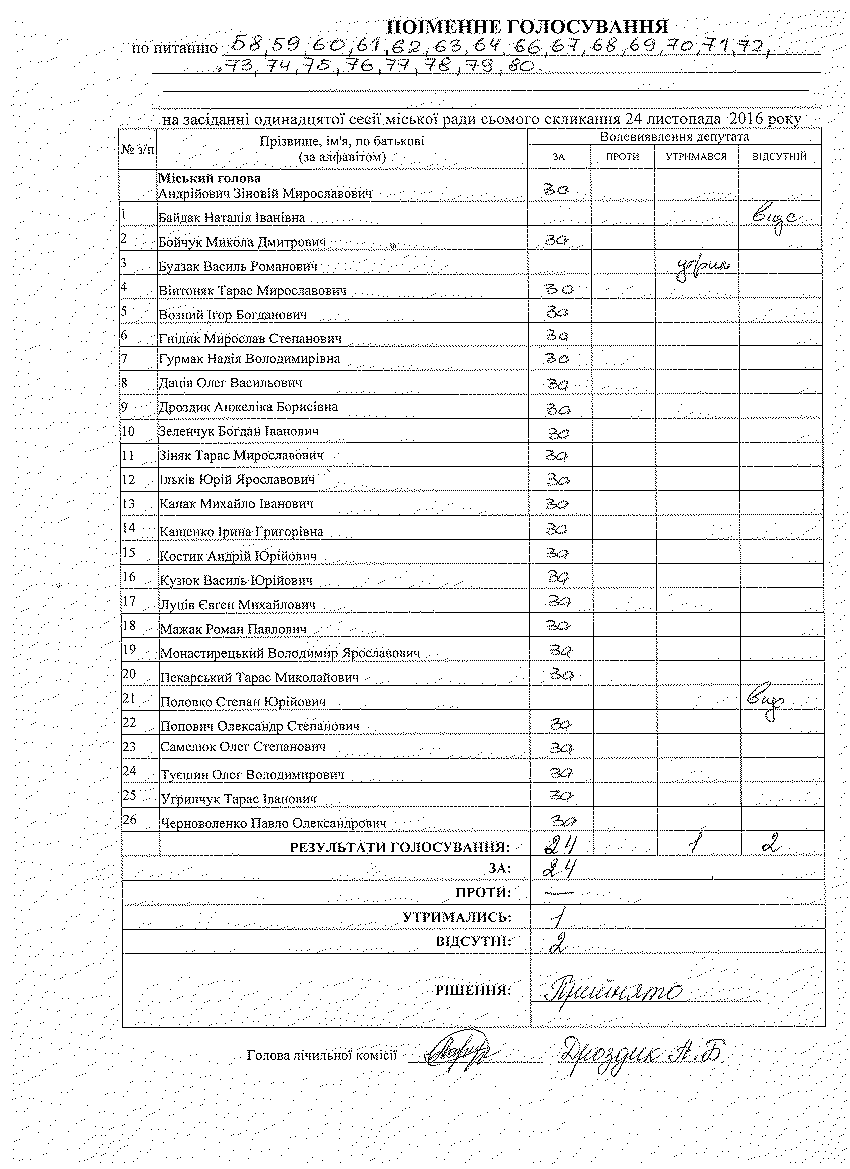 ПОІМЕННЕ ГОЛОСУВАННЯ
по питанню 58,59,60,61,62,63,64,66,67,68,69,70,71,72,
73,74,75,76,77,78,79,80
на засіданні одинадцятої сесії міської ради сьомого скликання 24 листопада 2016 року
№ з/п Прізвище, ім'я, по батькові (за алфавітом) Волевиявлення депутата
ЗА ПРОТИ УТРИМАВСЯ ВІДСУТНІЙ
Міський голова
Андрійович Зіновій Мирославович за
1 Байдак Наталія Іванівна відс
2 Бойчук Микола Дмитрович за
3 Будзак Василь Романович утрим
4 Вінтоняк Тарас Мирославович за
5 Возний Ігор Богданович за
6 Гнідик Мирослав Степанович за
7 Гурмак Надія Володимирівна за
8 Даців Олег Васильович за
9 Дроздик Анжеліка Борисівна за
10 Зеленчук Богдан Іванович за
11 Зіняк Тарас Мирославович за
12 Ільків Юрій Ярославович за
13 Капак Михайло Іванович за
14 Кащенко Ірина Григорівна за
15 Костик Андрій Юрійович за
16 Кузюк Василь Юрійович за
17 Луців Євген Михайлович за
18 Мажак Роман Павлович за
19 Монастирецький Володимир Ярославович за
20 Пекарський Тарас Миколайович за
21 Половко Степан Юрійович відс
22 Попович Олександр Степанович за
23 Самелюк Олег Степанович за
24 Туєшин Олег Володимирович за
25 Угринчук Тарас Іванович за
26 Черноволенко Павло Олександрович за
РЕЗУЛЬТАТИ ГОЛОСУВАННЯ: 24 1 2
ЗА: 24
ПРОТИ: —
УТРИМАЛИСЬ: 1
ВІДСУТНІ: 2
РІШЕННЯ: Прийнято
Голова лічильної комісії Дроздик А.Б